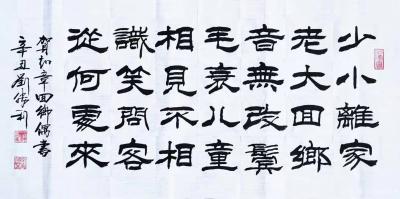 少小離家
老大回鄉
音無改鬢
毛衰儿童
相見不相
識笑問客
從何處來
賀知章回鄉偶書
辛丑劉